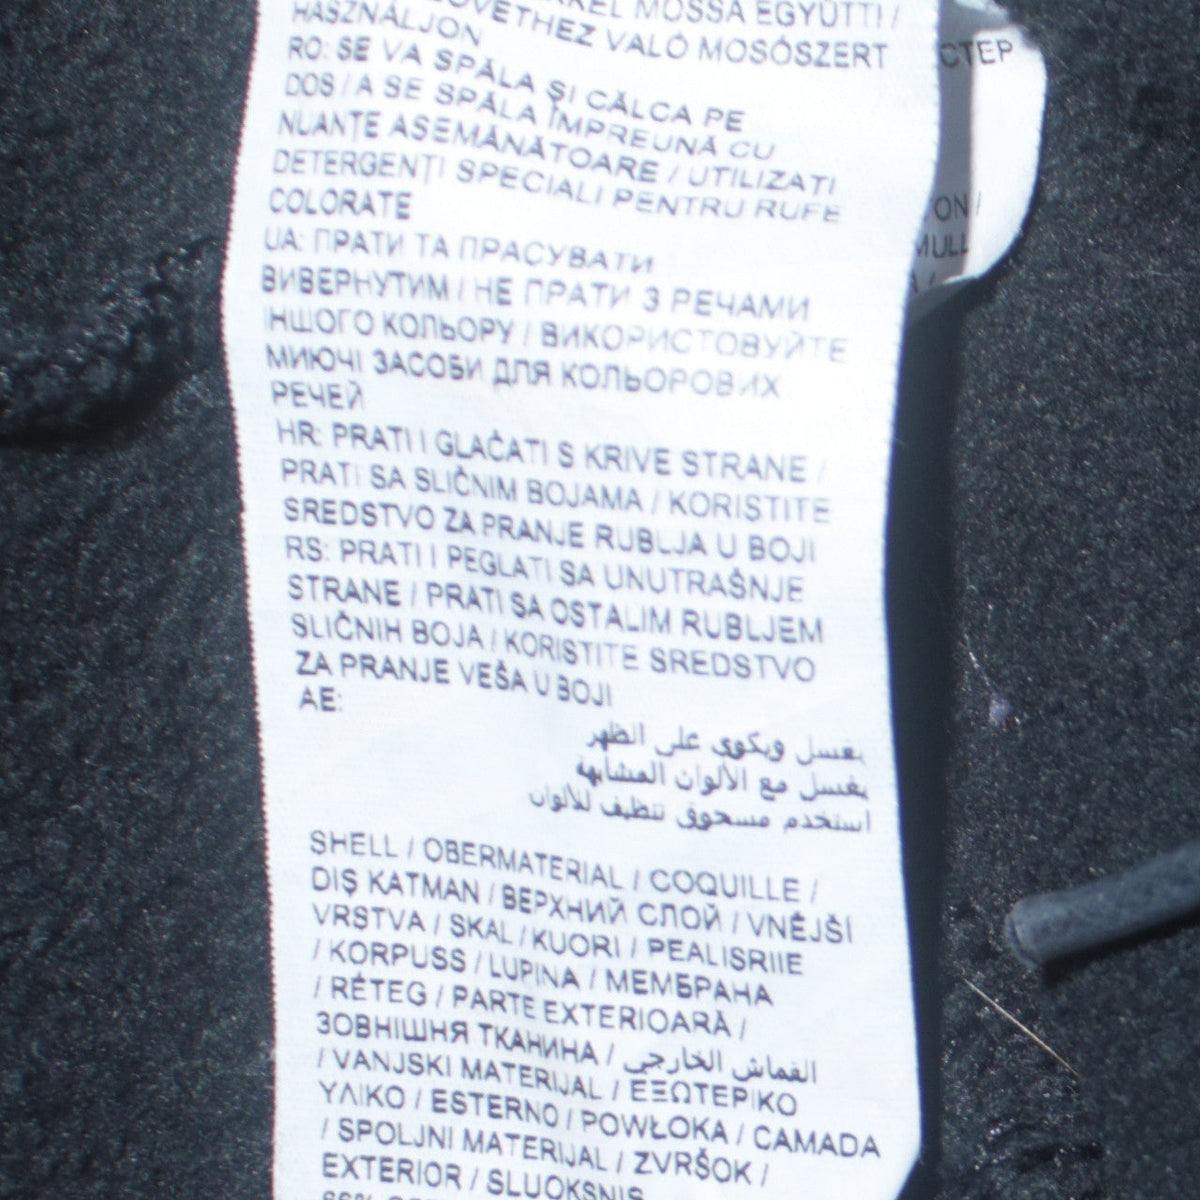 MOSSA EGYÜTT! /
HASZNÁLJON
VALÓ MOSÓSZERT
RO: SE VA SPĂLA ŞI CĂLCA PE
DOS / A SE SPĂLA ÎMPREUNĂ CU
NUANŢE ASEMĂNĂTOARE / UTILIZATI
DETERGENŢI SPECIALI PENTRU RUFE
COLORATE
UA: ПРАТИ ТА ПРАСУВАТИ
ВИВЕРНУТИМ / НЕ ПРАТИ З РЕЧАМИ
ІНШОГО КОЛЬОРУ / ВИКОРИСТОВУЙТЕ
МИЮЧІ ЗАСОБИ ДЛЯ КОЛЬОРОВИХ
РЕЧЕЙ
HR: PRATI I GLAČATI S KRIVE STRANE /
PRATI SA SLIČNIM BOJAMA / KORISTITE
SREDSTVO ZA PRANJE RUBLJA U BOJI
RS: PRATI I PEGLATI SA UNUTRAŠNJE
STRANE / PRATI SA OSTALIM RUBLJEM
SLIČNIH BOJA / KORISTITE SREDSTVO
ZA PRANJE VEŠA U BOJI
AE:
يغسل ويكوى على الظهر
يغسل مع الألوان المشابهة
استخدم مسحوق تنظيف للألوان
SHELL / OBERMATERIAL / COQUILLE /
DIŞ KATMAN / ВЕРХНИЙ СЛОЙ / VNĚJŠÍ
VRSTVA / SKAL / KUORI / PEALISRIIE
/ KORPUSS / LUPINA / МЕМБРАНА
/ RÉTEG / PARTE EXTERIOARĂ /
ЗОВНІШНЯ ТКАНИНА / القماش الخارجي
/ VANJSKI MATERIJAL / ΕΞΩΤΕΡΙΚΟ
ΥΛΙΚΟ / ESTERNO / POWŁOKA / CAMADA
/ SPOLJNI MATERIJAL / ZVRŠOK /
EXTERIOR / SLUOKSNIS